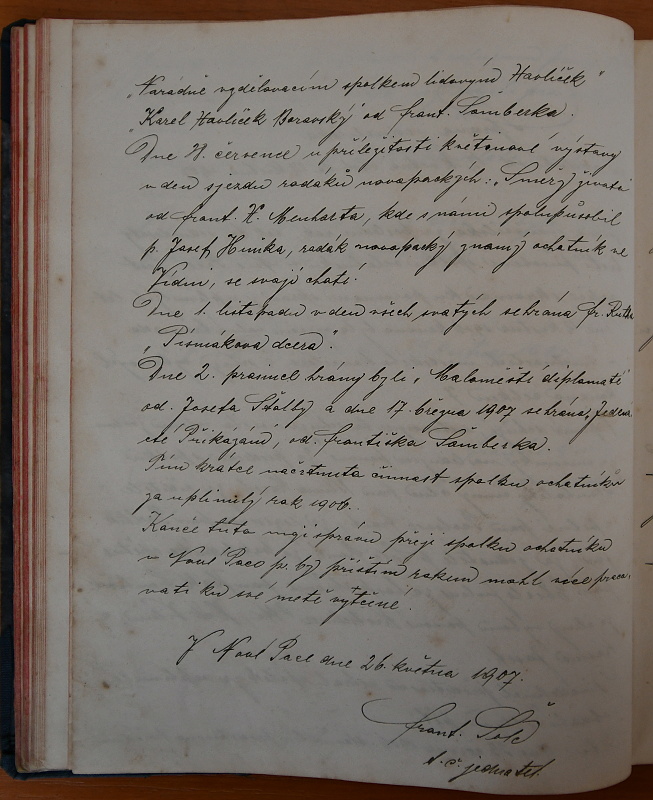 „Národně vzdělovacím spolkem lidovým Havlíček"
„Karel Havlíček Borovský" od Frant. Šamberka.
Dne 8. července u příležitosti květinové výstavy
v den sjezdu rodáků novopackých: „Směry života
od Frant. X. Menharta, kde s námi spolupůsobil
p. Josef Hnika, rodák novopacký známý ochotník ve
Vídni, se svojí chotí.
Dne 1. listopadu v den všech svatých sehrána Fr. Rutha
„Písmákova dcera".
Dne 2. prosince hrány byli „Maloměstí diplomati
od Josefa Štolby a dne 17. března 1907 sehráno „Jedená
cté Přikázání, od Františka Šamberka.
Tím krátce načrtnuta činnost spolku ochotníků
za uplinulý rok 1906.
Konče tuto mojí správu přeji spolku ochotníků
v Nové Pace p. by příštím rokem mohl více praco-
vati ku své metě vytčené.
V Nové Pace dne 26. května 1907.
Frant. Šolc
t. č. jednatel.